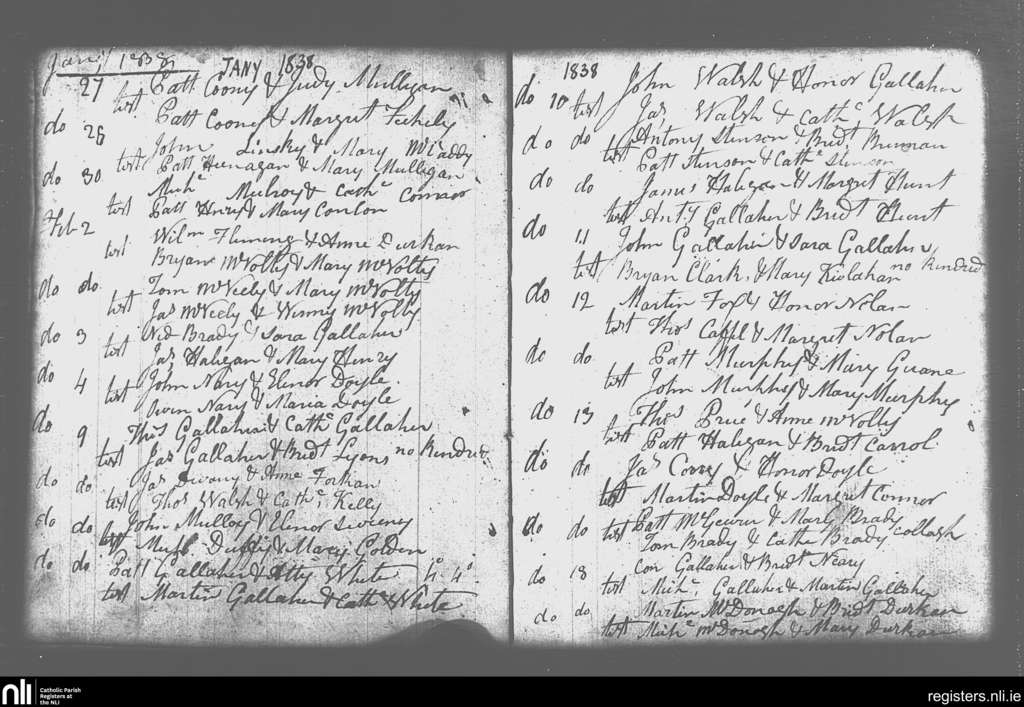 Jany 1838 JANY 1838
27 Patt Coony & Judy Mulligan
test Patt Coony & Margret Feheley
do 28 John Linskey & Mary McCaddy
test Patt Heenagan & Mary Mulligan
do 30 Mich. Mulroy & Cath. Connor
test Patt Henry & Mary Conlon
Feb 2 Wilm Fleming & Anne Durkan
test Bryan McVolty & Mary McVolty
do do Tom McNeely & Mary McVolty
test Jas McNeely & Winny McVolty
do 3 Ned Brady & Sara Gallaher
test Jas Halegan & Mary Henry
do 4 John Nary & Elenor Doyle
test Owen Nary & Maria Doyle
do 9 Thos Gallaher & Cath. Gallaher
test Jas Gallaher & Bridt Lyons no Kindred
do do Jas & Anne Forkan
test Thos Walsh & Cath. Kelly
do do John Mulloy & Elenor Sweeney
test Duffy & Mary Golden
do do Patt Gallaher & Atty White 4° 4°
test Martin Gallaher & Cath. White
1838
do 10 John Walsh & Honor Gallaher
test Jas Walsh & Cath. Walsh
do do Antony Stinson & Bridt Brennan
test Patt Stinson & Cath. Stinson
do do James Halegan & Margret Hunt
test Anty Gallaher & Bridt Hunt
do 11 John Gallaher & Sara Gallaher
test Bryan Clark & Mary Kielahan no Kindred
do 12 Martin Foy & Honor Nolan
test Thos Caffl & Margret Nolan
do do Patt Murphy & Mary Guane
test John Murphy & Mary Murphy
do 13 Thos Prue & Anne McVolty
test Patt Halegan & Bridt Carrol
do do Jas Correy & Honor Doyle
test Martin Doyle & Margret Connor
do do Patt McGeever & Mary Brady
test Tom Brady & Cathe Brady Collagh
do 18 Con Gallaher & Bridt Neary
test Mich. Gallaher & Martin Gallaher
do do Martin McDonagh & Bridt Durkan
test Miche McDonogh & Mary Durkan
nli Catholic Parish
Registers at
the NLI
registers.nli.ie